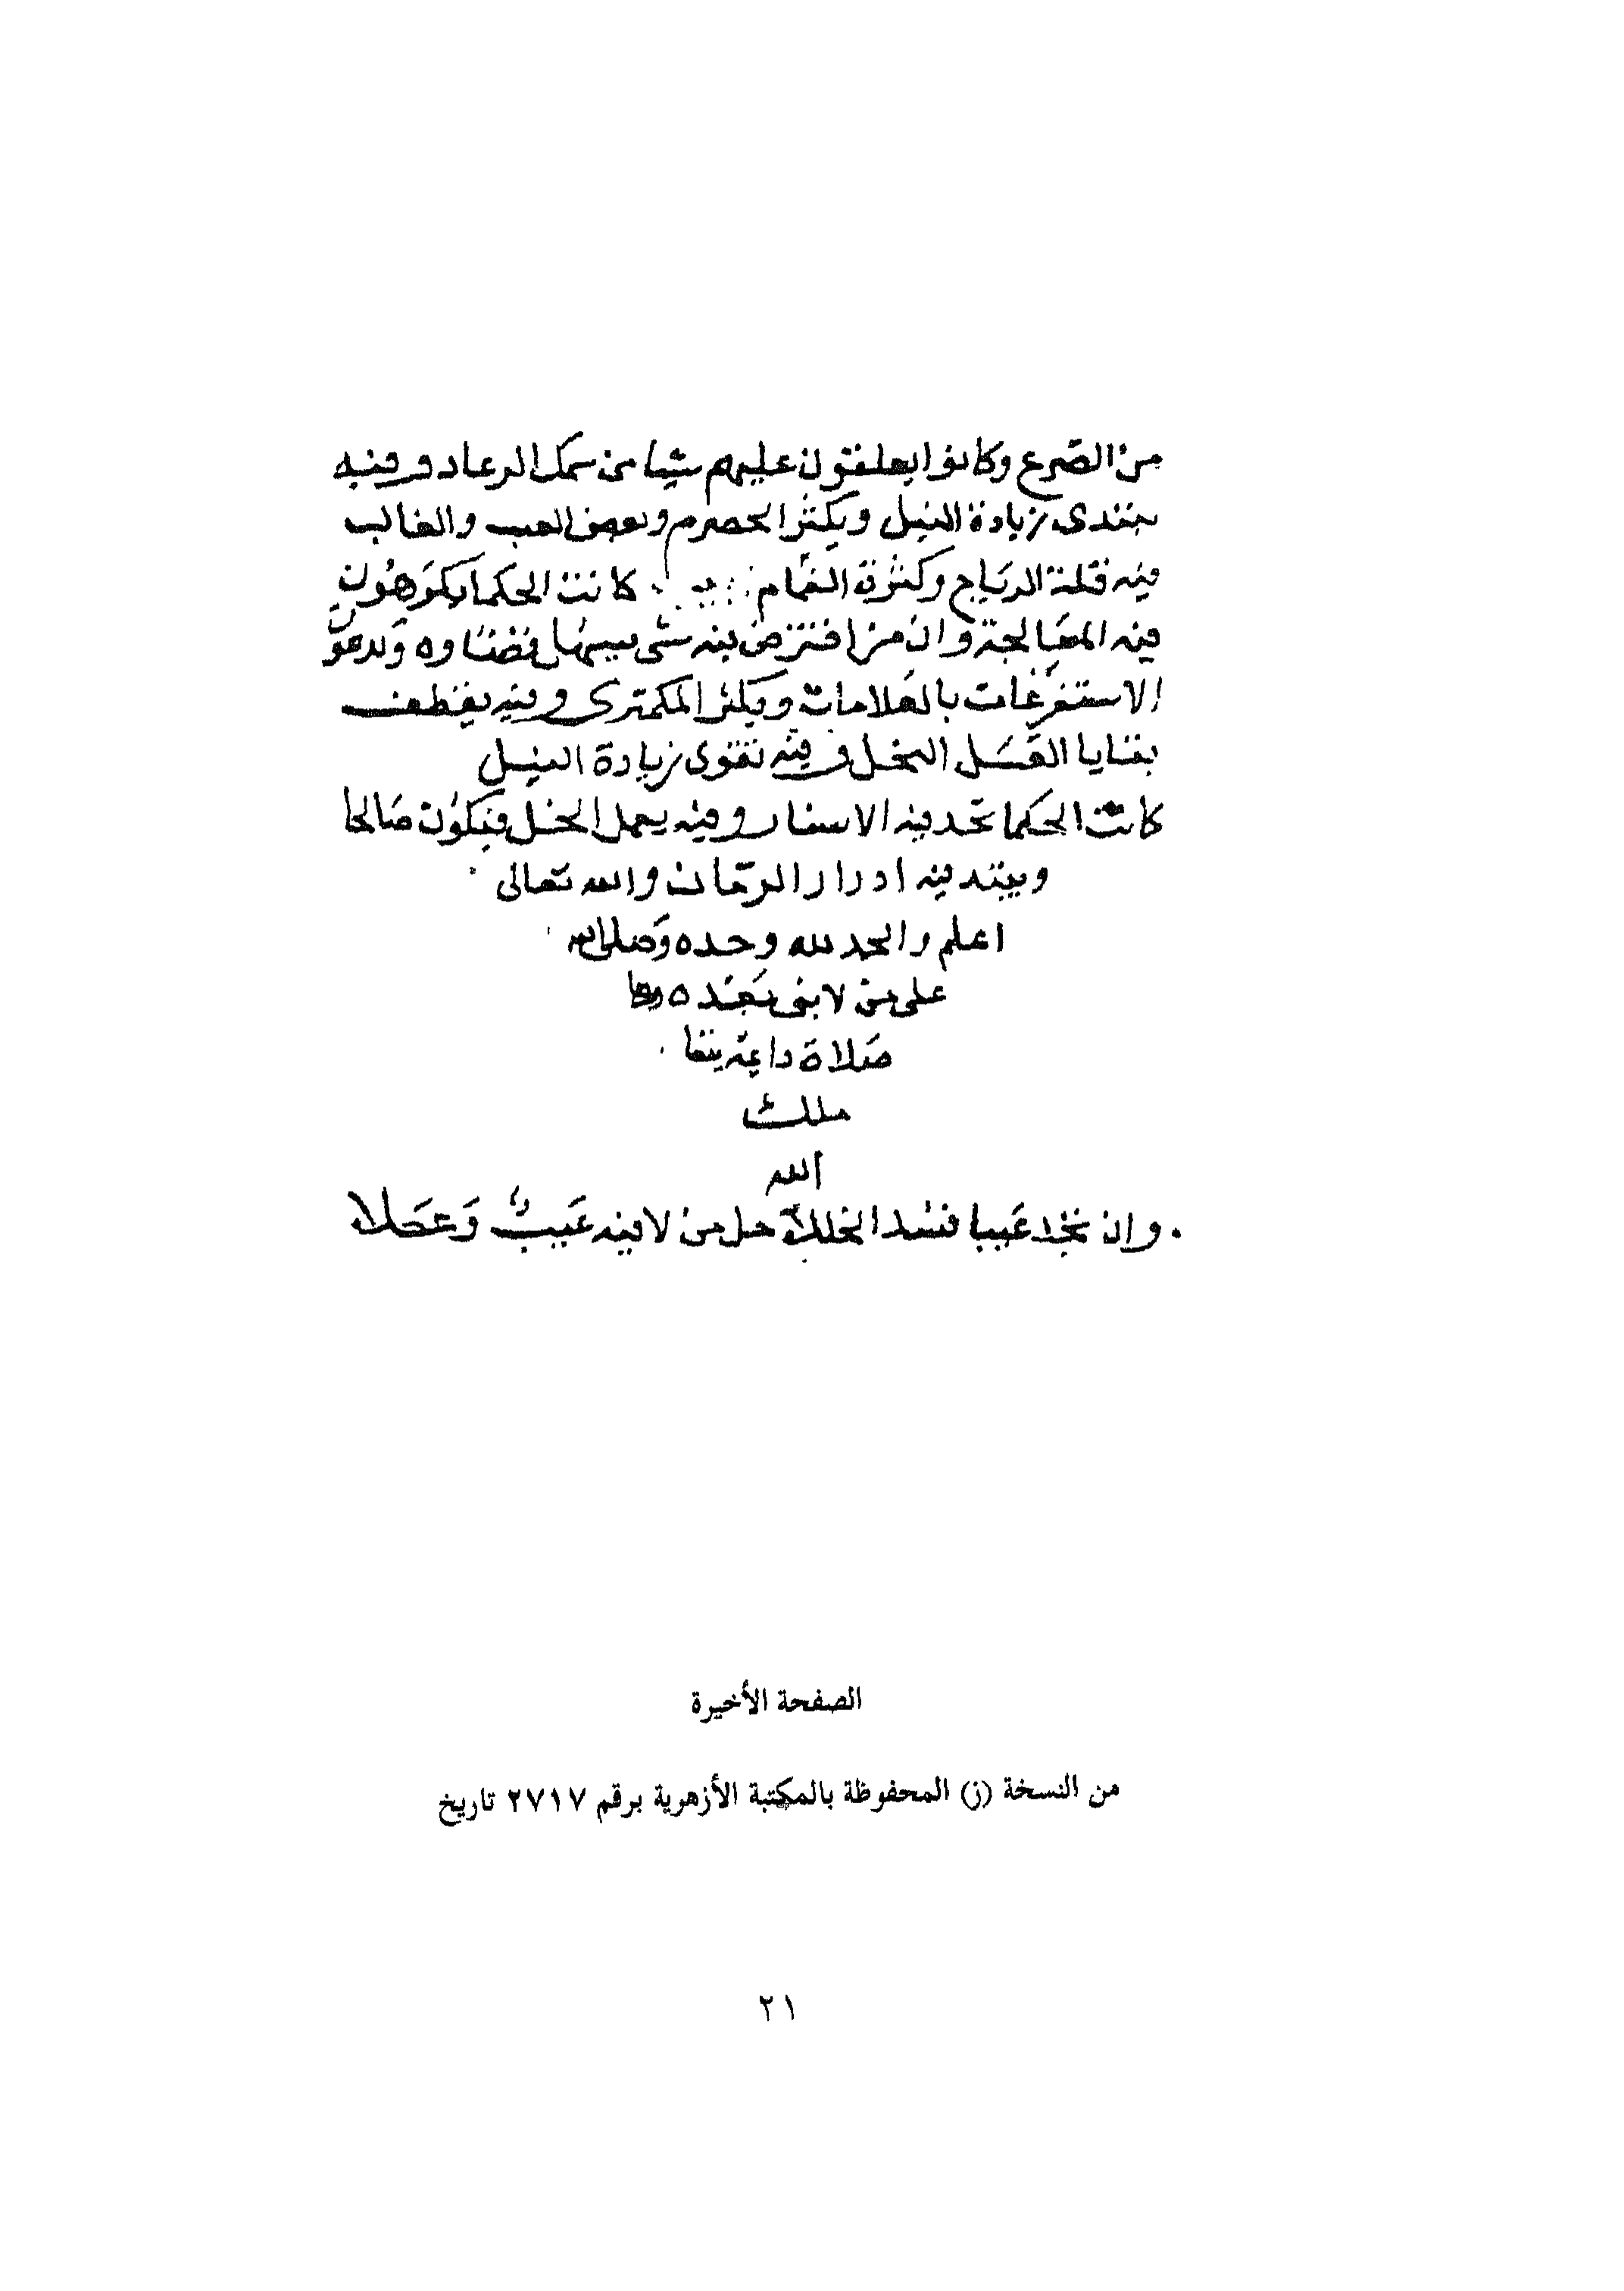 من الصّرع وكانوا يعلقون عليهم شيا من سمك الرعاد وفيه
يبتدى زيادة النيل ويكثر الحصرم وبعض العنب والغالب
فيه قلة الرياح وكثرة الغمام كانت الحكما يكرهون
فيه المعَالجة وان من افترض فيه شى بيسهل فضاوه
الاستفرغات بالعلامات ويكثر الكمترى وفيه يقطف
بقايا العَسَل النحل وفيه تقوى زيادة النيل
كانت الحكما تحد فيه الاسفار وفيه يعمل الخل فيكون صَالحا
ويبتد فيه ادرار الرمّان والله تعالى
اعلم والحمد لله وحده وَصلى الله
على من لا نبى بَعْده
صَلاة دايمة بتقا
ملك
الله
وان تجد عَيبا فسُد الخللا جل من لا فيه عَيبٌ وَعَلا
الصفحة الأخيرة
من النسخة (ز) المحفوظة بالمكتبة الأزهرية برقم ٢٧١٧ تاريخ
٢١